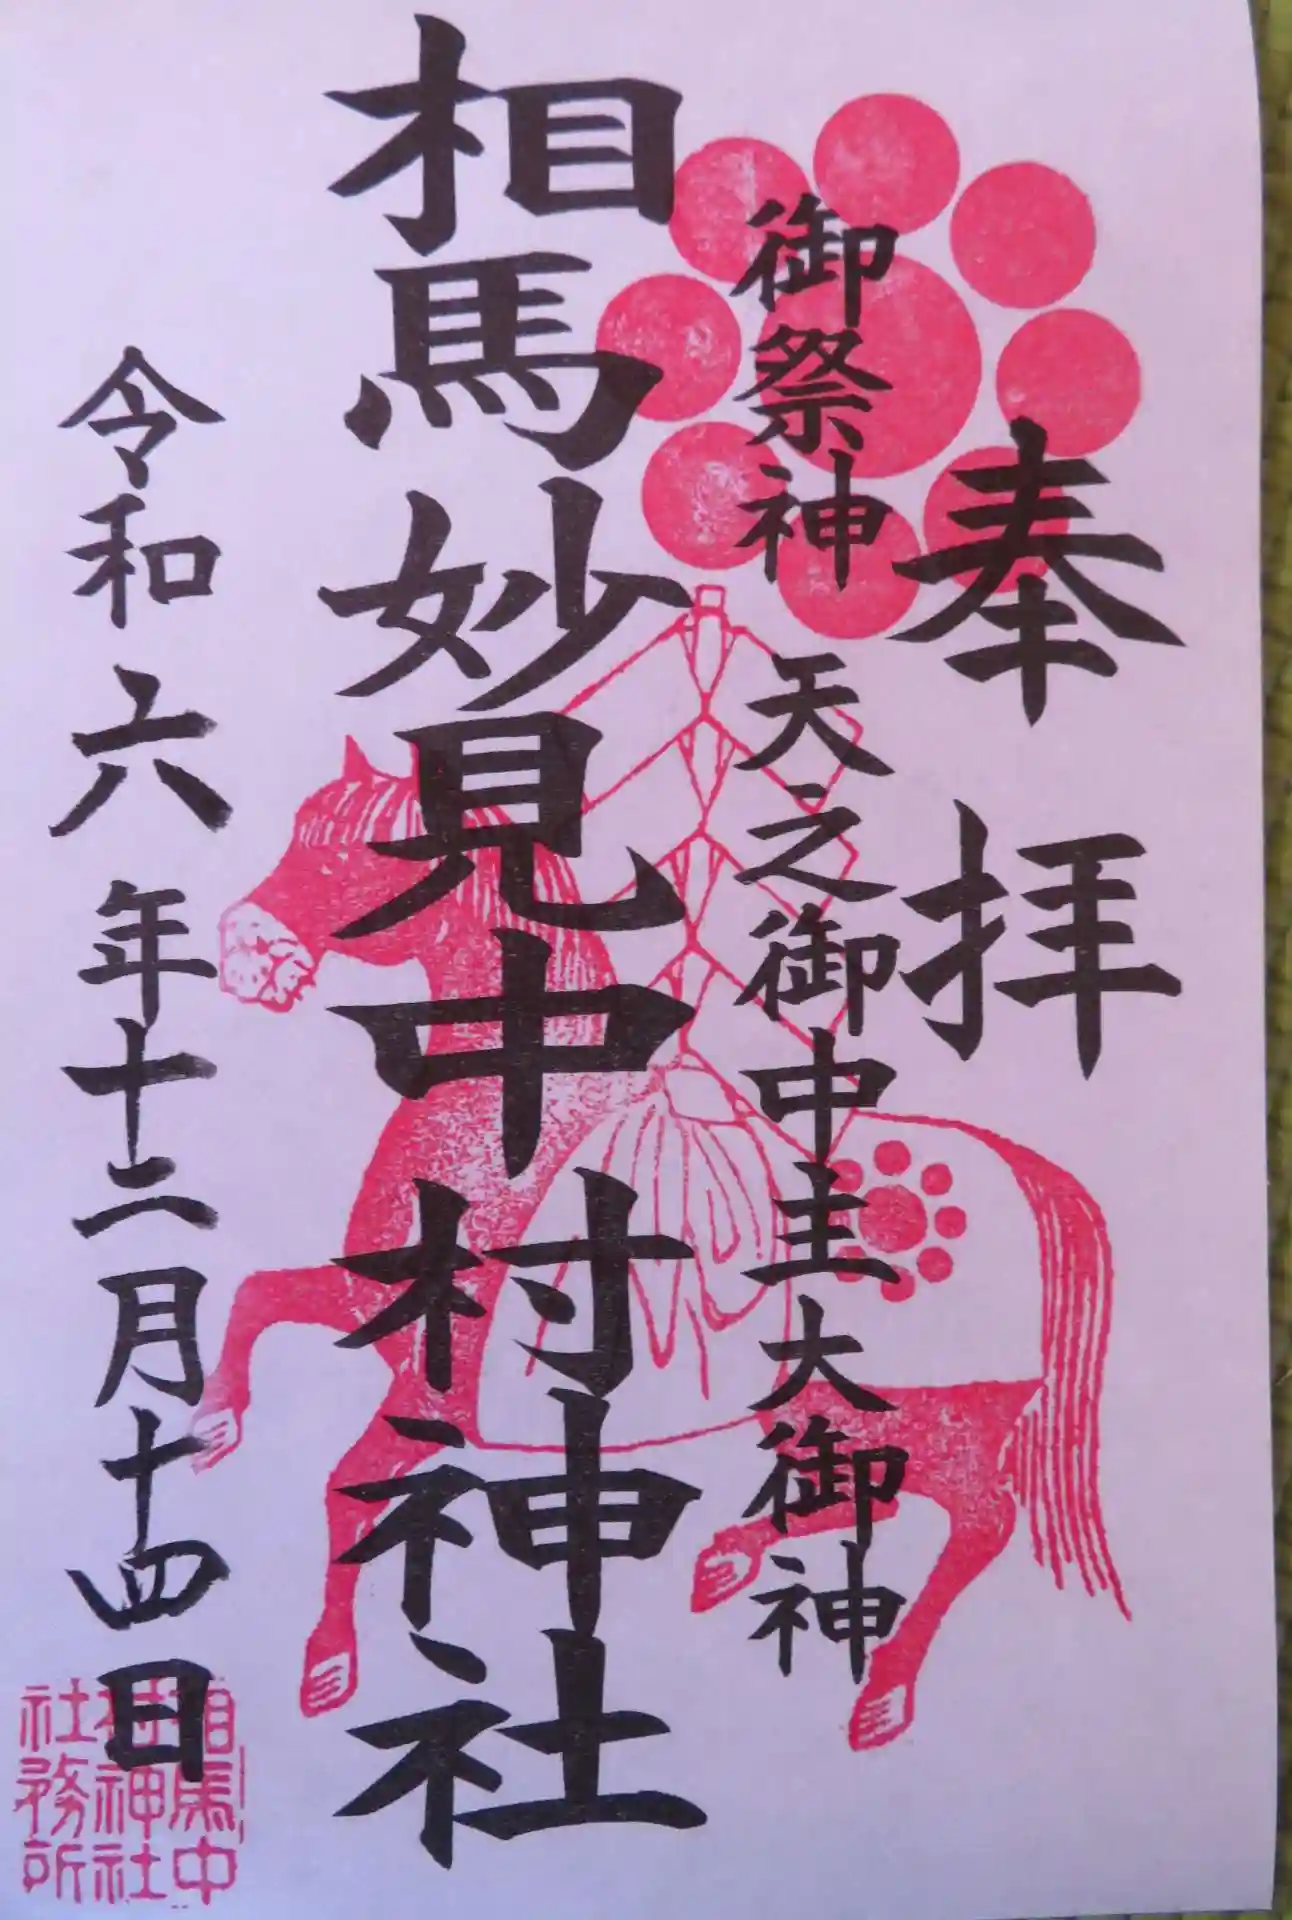 奉拝
御祭神 天之御中主大御神
相馬妙見中村神社
令和六年十二月十四日
相馬中
村神社
社務所